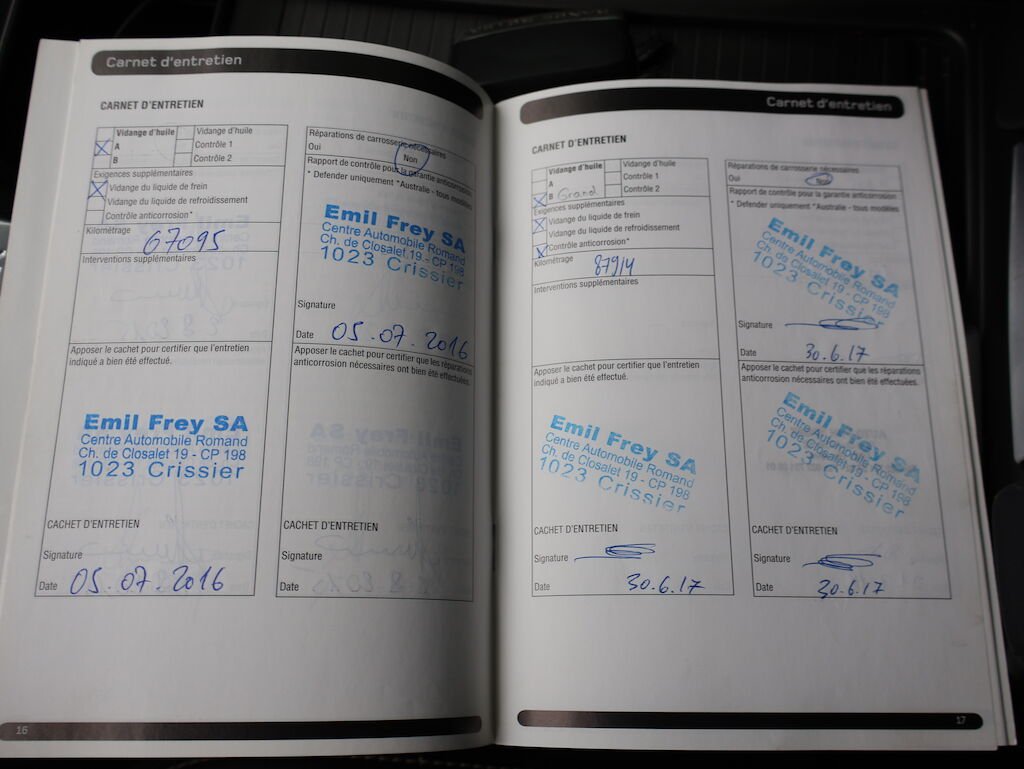 Carnet d'entretien
CARNET D'ENTRETIEN
Vidange d'huile
A
B
Vidange d'huile
Contrôle 1
Contrôle 2
Exigences supplémentaires
Vidange du liquide de frein
Vidange du liquide de refroidissement
Contrôle anticorrosion*
Kilométrage
67095
Interventions supplémentaires
Apposer le cachet pour certifier que l'entretien
indiqué a bien été effectué.
Emil Frey SA
Centre Automobile Romand
Ch. de Closalet 19 - CP 198
1023 Crissier
CACHET D'ENTRETIEN
Signature
Date 05.07.2016
Réparations de carrosserie nécessaires
Oui Non
Rapport de contrôle pour la garantie anticorrosion
* Defender uniquement "Australie - tous modèles
Emil Frey SA
Centre Automobile Romand
Ch. de Closalet 19 - CP 198
1023 Crissier
Signature
Date 05.07.2016
Apposer le cachet pour certifier que les réparations
anticorrosion nécessaires ont bien été effectuées.
CACHET D'ENTRETIEN
Signature
Date
16
Carnet d'entretien
CARNET D'ENTRETIEN
Vidange d'huile
A
B Grand
Vidange d'huile
Contrôle 1
Contrôle 2
Exigences supplémentaires
Vidange du liquide de frein
Vidange du liquide de refroidissement
Contrôle anticorrosion*
Kilométrage
87914
Interventions supplémentaires
Apposer le cachet pour certifier que l'entretien
indiqué a bien été effectué.
Emil Frey SA
Centre Automobile Romand
Ch. de Closalet 19 - CP 198
1023 Crissier
CACHET D'ENTRETIEN
Signature
Date 30.6.17
Réparations de carrosserie nécessaires
Oui Non
Rapport de contrôle pour la garantie anticorrosion
* Defender uniquement "Australie - tous modèles
Emil Frey SA
Centre Automobile Romand
Ch. de Closalet 19 - CP 198
1023 Crissier
Signature
Date 30.6.17
Apposer le cachet pour certifier que les réparations
anticorrosion nécessaires ont bien été effectuées.
Emil Frey SA
Centre Automobile Romand
Ch. de Closalet 19 - CP 198
1023 Crissier
CACHET D'ENTRETIEN
Signature
Date 30.6.17
17